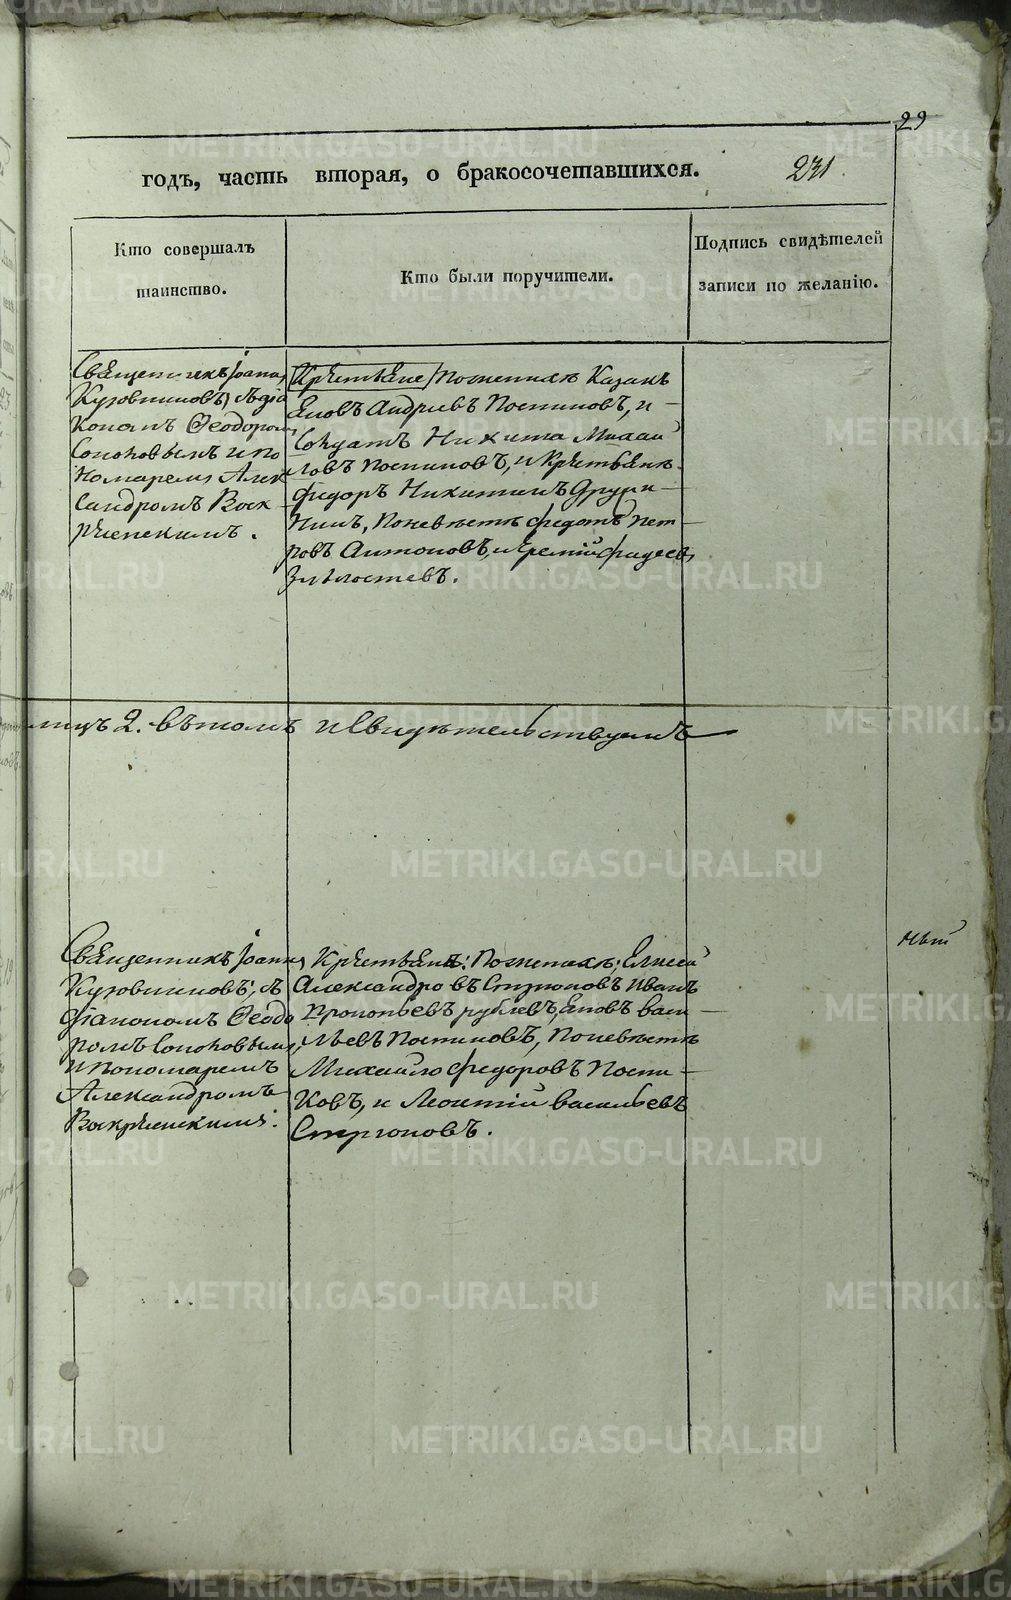 29
годъ, часть вторая, о бракосочетавшихся. 231.
Кто совершалъ
таинство.
Кто были поручители.
Подпись свидѣтелей
записи по желанію.
Священникъ Іоаннъ
Кузовниковъ, съ діа
кономъ Ѳеодоромъ
и по
номаремъ Алек
сандромъ Воск
ресенскимъ.
Крестьяне По женихѣ Казанъ
Андреевъ Постниковъ, и
Солдатъ Никита Михай
ловъ Постниковъ, и Крестьянъ
Федоръ Никитинъ Други
нинъ, По невѣстѣ Федотъ Пет
ровъ Антоновъ, и Еремій Фадеевъ
лицъ 2. въ томъ и Свидѣтельствуемъ
Священникъ Іоаннъ
Кузовниковъ; съ
діакономъ Ѳеодо
ромъ
и пономаремъ
Александромъ
Воскресенскимъ.
Крестьяне: По женихѣ; Елисей
Александровъ Иванъ
Прокопьевъ Рублевъ, Васи
льевъ Постниковъ, По невѣстѣ
Михайло Федоровъ Пости
ковъ, и Леонтій Васильевъ
METRIKI.GASO-URAL.RU